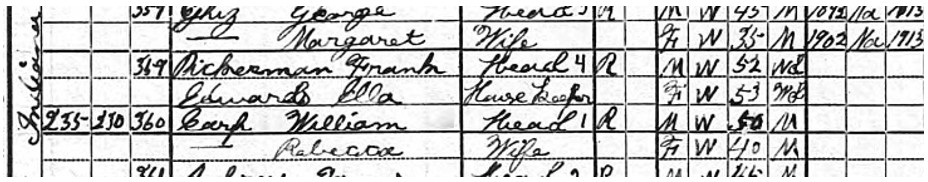 357 Ghiz George Head 3 R M W 45 M 1892 Na 1913
— Margaret Wife F W 35 M 1902 Na 1913
359 Dickerman Frank Head 4 R M W 52 Wd
Edwards Ella House Keeper F W 53 Wd
235 230 360 Carp William Head 1 R M W 50 M
Rebecca Wife F W 40 M
361 Head 2 R M W M